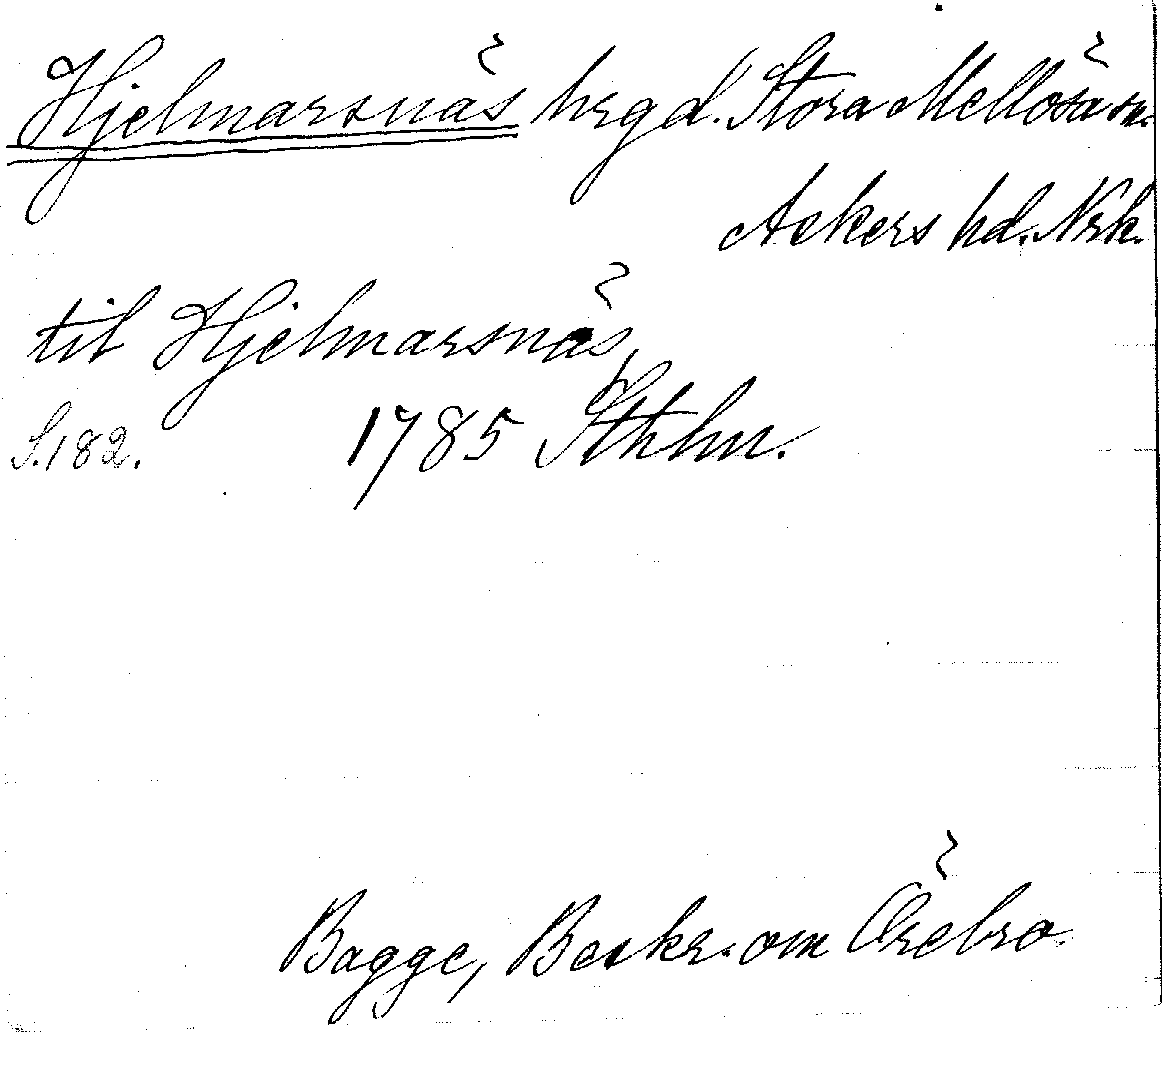 Hjelmarsnäs hrgd. Stora Mellösa sn.
Askers hd. Nrk.
til Hjelmarsnäs,
S. 182. 1785 Sthlm.
Bagge, Beskr. om Örebro.